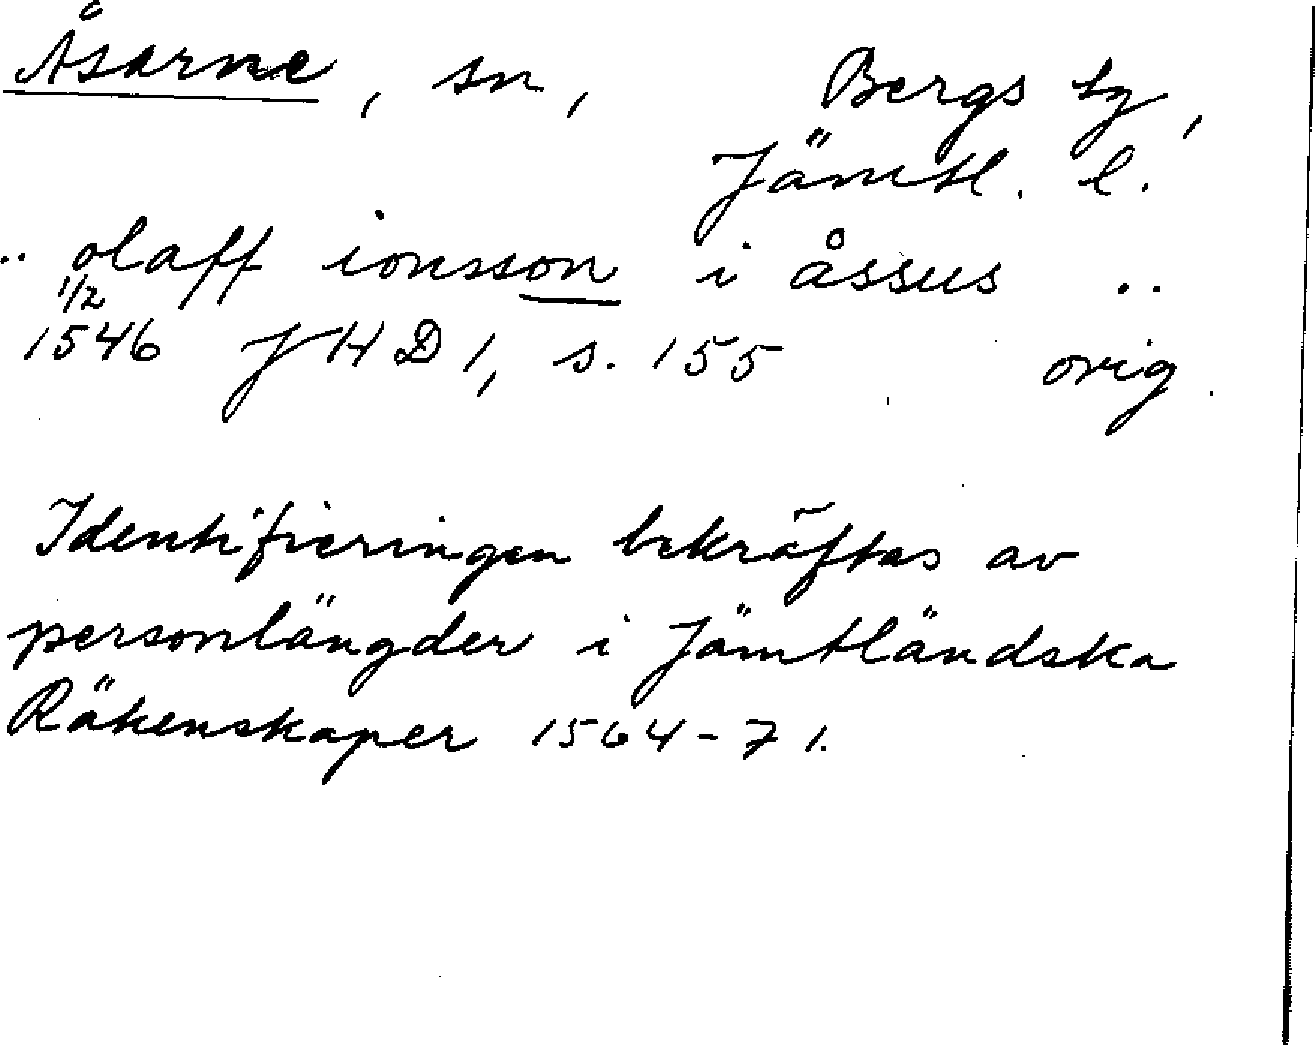 Åsarne, sn, Bergs tg,
Jämtl. l.
.. olaff ionsson i åssus ..
1/2
1546 JHD 1, s. 155 orig.
Identifieringen bekräftas av
personlängder i Jämtländska
Räkenskaper 1564-71.